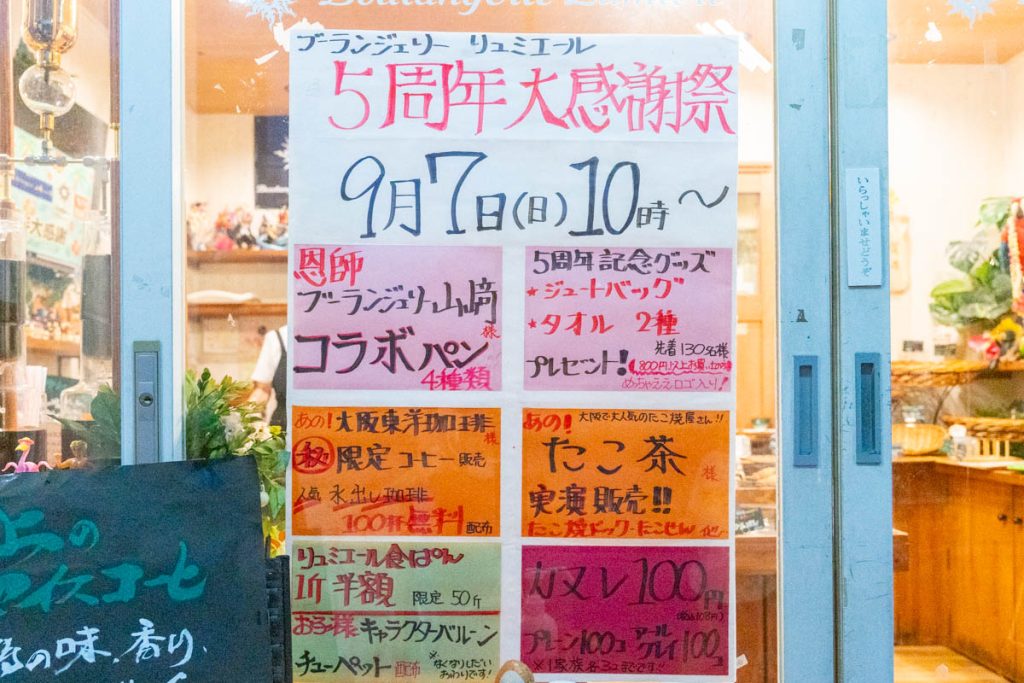 Boulangerie Lumière
ブーランジェリー リュミエール
5周年大感謝祭
9月7日(日)10時〜
恩師
ブーランジェリー山﨑様
コラボパン
4種類
5周年記念グッズ
★ジュートバッグ
★タオル 2種
先着130名様
プレゼント!
めちゃええロゴ入り!
あの!大阪東洋珈琲様
秋限定コーヒー販売
人気 水出し珈琲
100杯無料配布
あの!大阪で大人気のたこ焼屋さん!!
たこ茶様
実演販売!!
たこ焼ドック・たこせん
リュミエール食ぱん
1斤半額 限定50斤
お子様にキャラクターバルーン
チューペット配布
※なくなりしだい
おわりです!
カヌレ100円
(税込108円)
プレーン100コ アールグレイ100コ
※1家族各3コまでです!!
いらっしゃいませどうぞ
上の
アイスコーヒー
の味、香り、